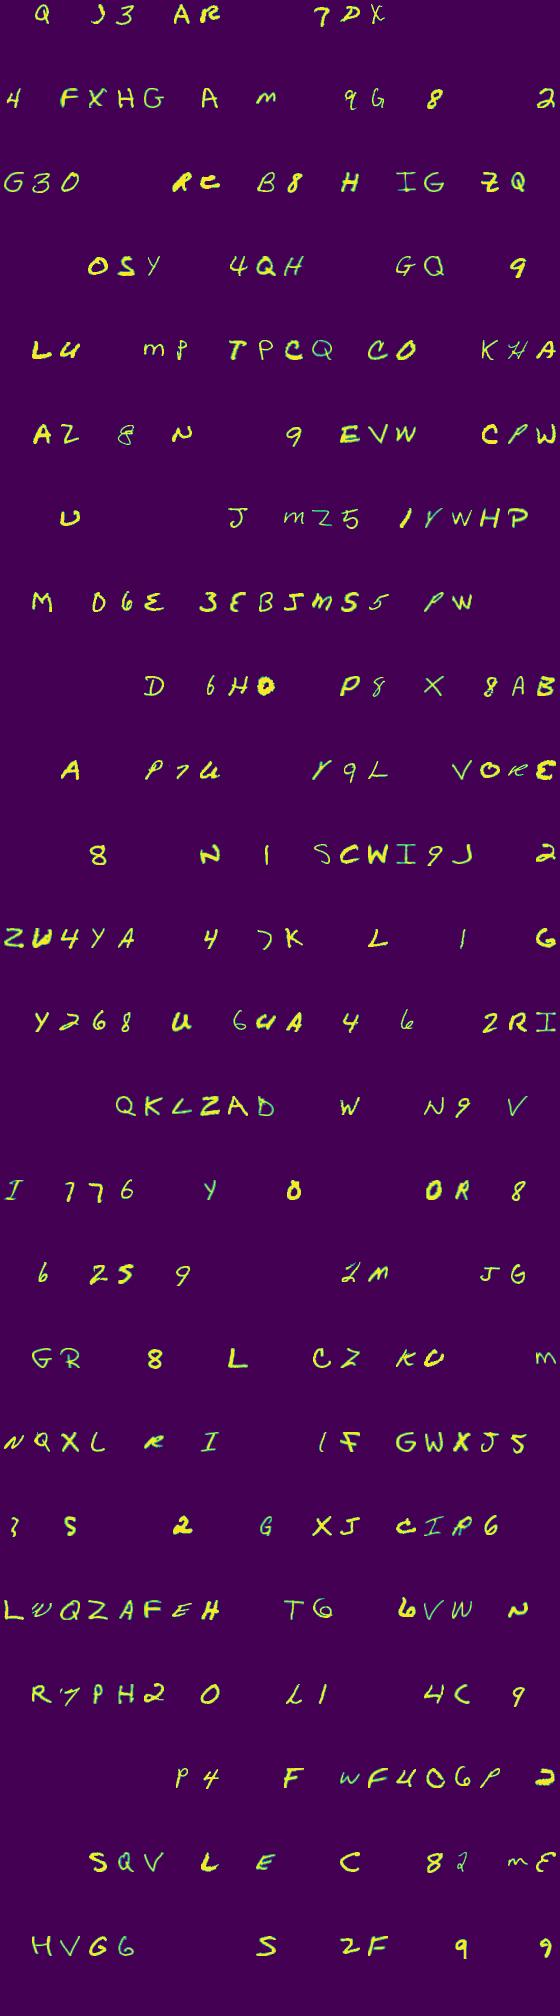 Q J3 AR 7DX
4 FXHG A m 9G 8 2
G30 RC B8 H IG ZQ
OSY 4QH GQ 9
LU mP TPCQ CO KHA
AZ 8 N 9 EVW CPW
U J mZ5 1YWHP
M D6E 3EBJMS5 PW
D 6H0 P8 X 8AB
A P7U Y9L VOKE
8 N 1 SCWI9J 2
ZW4YA 4 7K L 1 G
Y268 U 6UA 4 6 2RI
QKLZAD W N9 V
I 776 Y 0 0R 8
6 2S 9 2M JG
GR 8 L CZ KO m
NQXL R I 1F GWXJ5
3 S 2 G XJ CIR6
LWQZAFEH TG 6VW N
R7PH2 0 L1 4C 9
P4 F WF4O6P 2
SQV L E C 82 mE
HVG6 S 2F 9 9